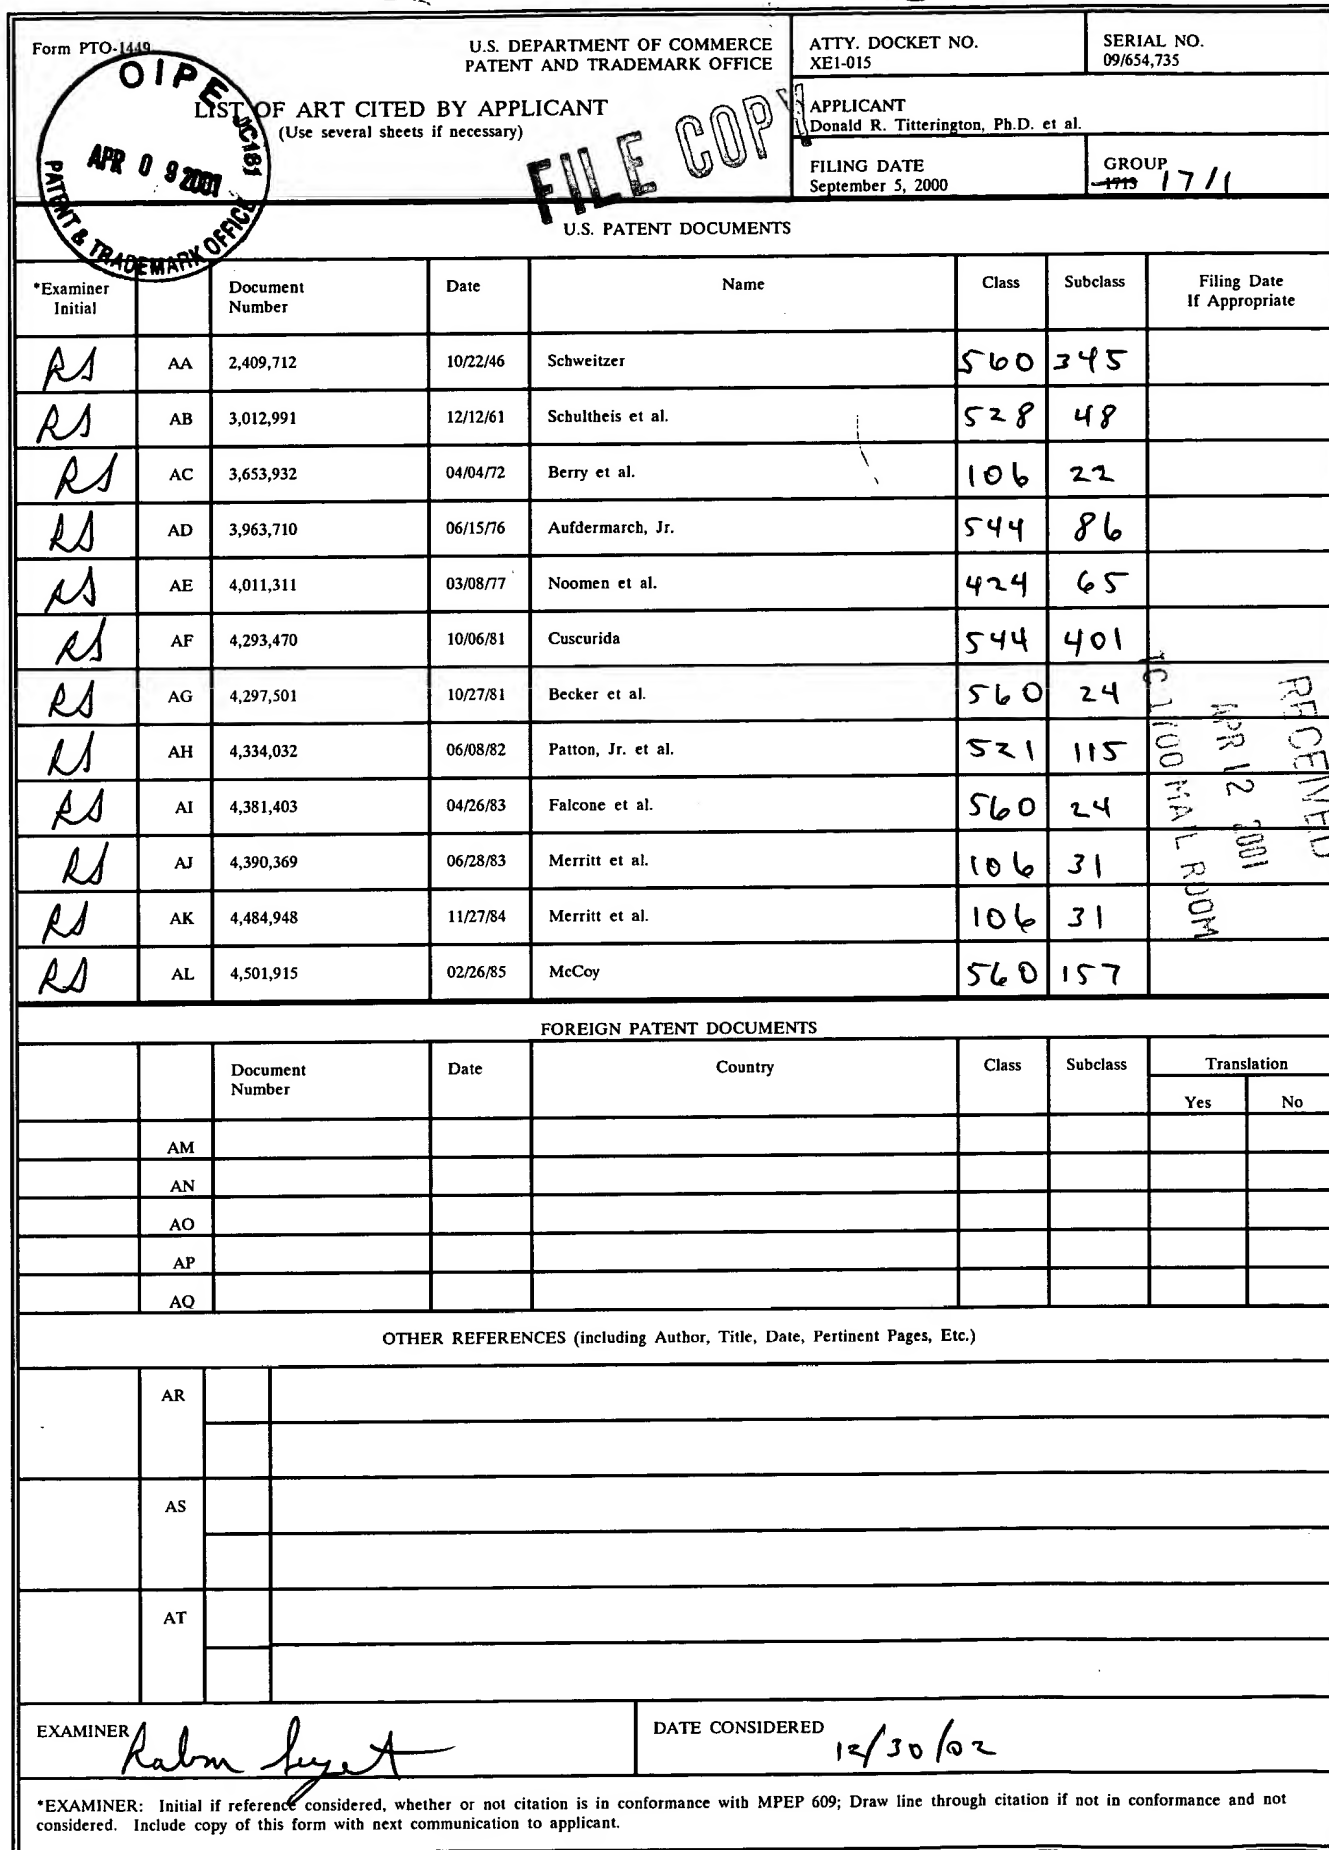 Form PTO-1449
U.S. DEPARTMENT OF COMMERCE
PATENT AND TRADEMARK OFFICE
ATTY. DOCKET NO.
XE1-015
SERIAL NO.
09/654,735
LIST OF ART CITED BY APPLICANT
(Use several sheets if necessary)
OIPE JC161
APR 09 2001
PATENT & TRADEMARK OFFICE
FILE COPY
APPLICANT
Donald R. Titterington, Ph.D. et al.
FILING DATE
September 5, 2000
GROUP
1713 1711
U.S. PATENT DOCUMENTS
*Examiner Initial Document Number Date Name Class Subclass Filing Date If Appropriate
RS AA 2,409,712 10/22/46 Schweitzer 560 345
RS AB 3,012,991 12/12/61 Schultheis et al. 528 48
RS AC 3,653,932 04/04/72 Berry et al. 106 22
RS AD 3,963,710 06/15/76 Aufdermarch, Jr. 544 86
RS AE 4,011,311 03/08/77 Noomen et al. 424 65
RS AF 4,293,470 10/06/81 Cuscurida 544 401
RS AG 4,297,501 10/27/81 Becker et al. 560 24
RS AH 4,334,032 06/08/82 Patton, Jr. et al. 521 115
RS AI 4,381,403 04/26/83 Falcone et al. 560 24
RS AJ 4,390,369 06/28/83 Merritt et al. 106 31
RS AK 4,484,948 11/27/84 Merritt et al. 106 31
RS AL 4,501,915 02/26/85 McCoy 560 157
RECEIVED
APR 12 2001
TC 1700 MAIL ROOM
FOREIGN PATENT DOCUMENTS
Document Number Date Country Class Subclass Translation
Yes No
AM
AN
AO
AP
AQ
OTHER REFERENCES (including Author, Title, Date, Pertinent Pages, Etc.)
AR
AS
AT
EXAMINER
DATE CONSIDERED 12/30/02
*EXAMINER: Initial if reference considered, whether or not citation is in conformance with MPEP 609; Draw line through citation if not in conformance and not
considered. Include copy of this form with next communication to applicant.